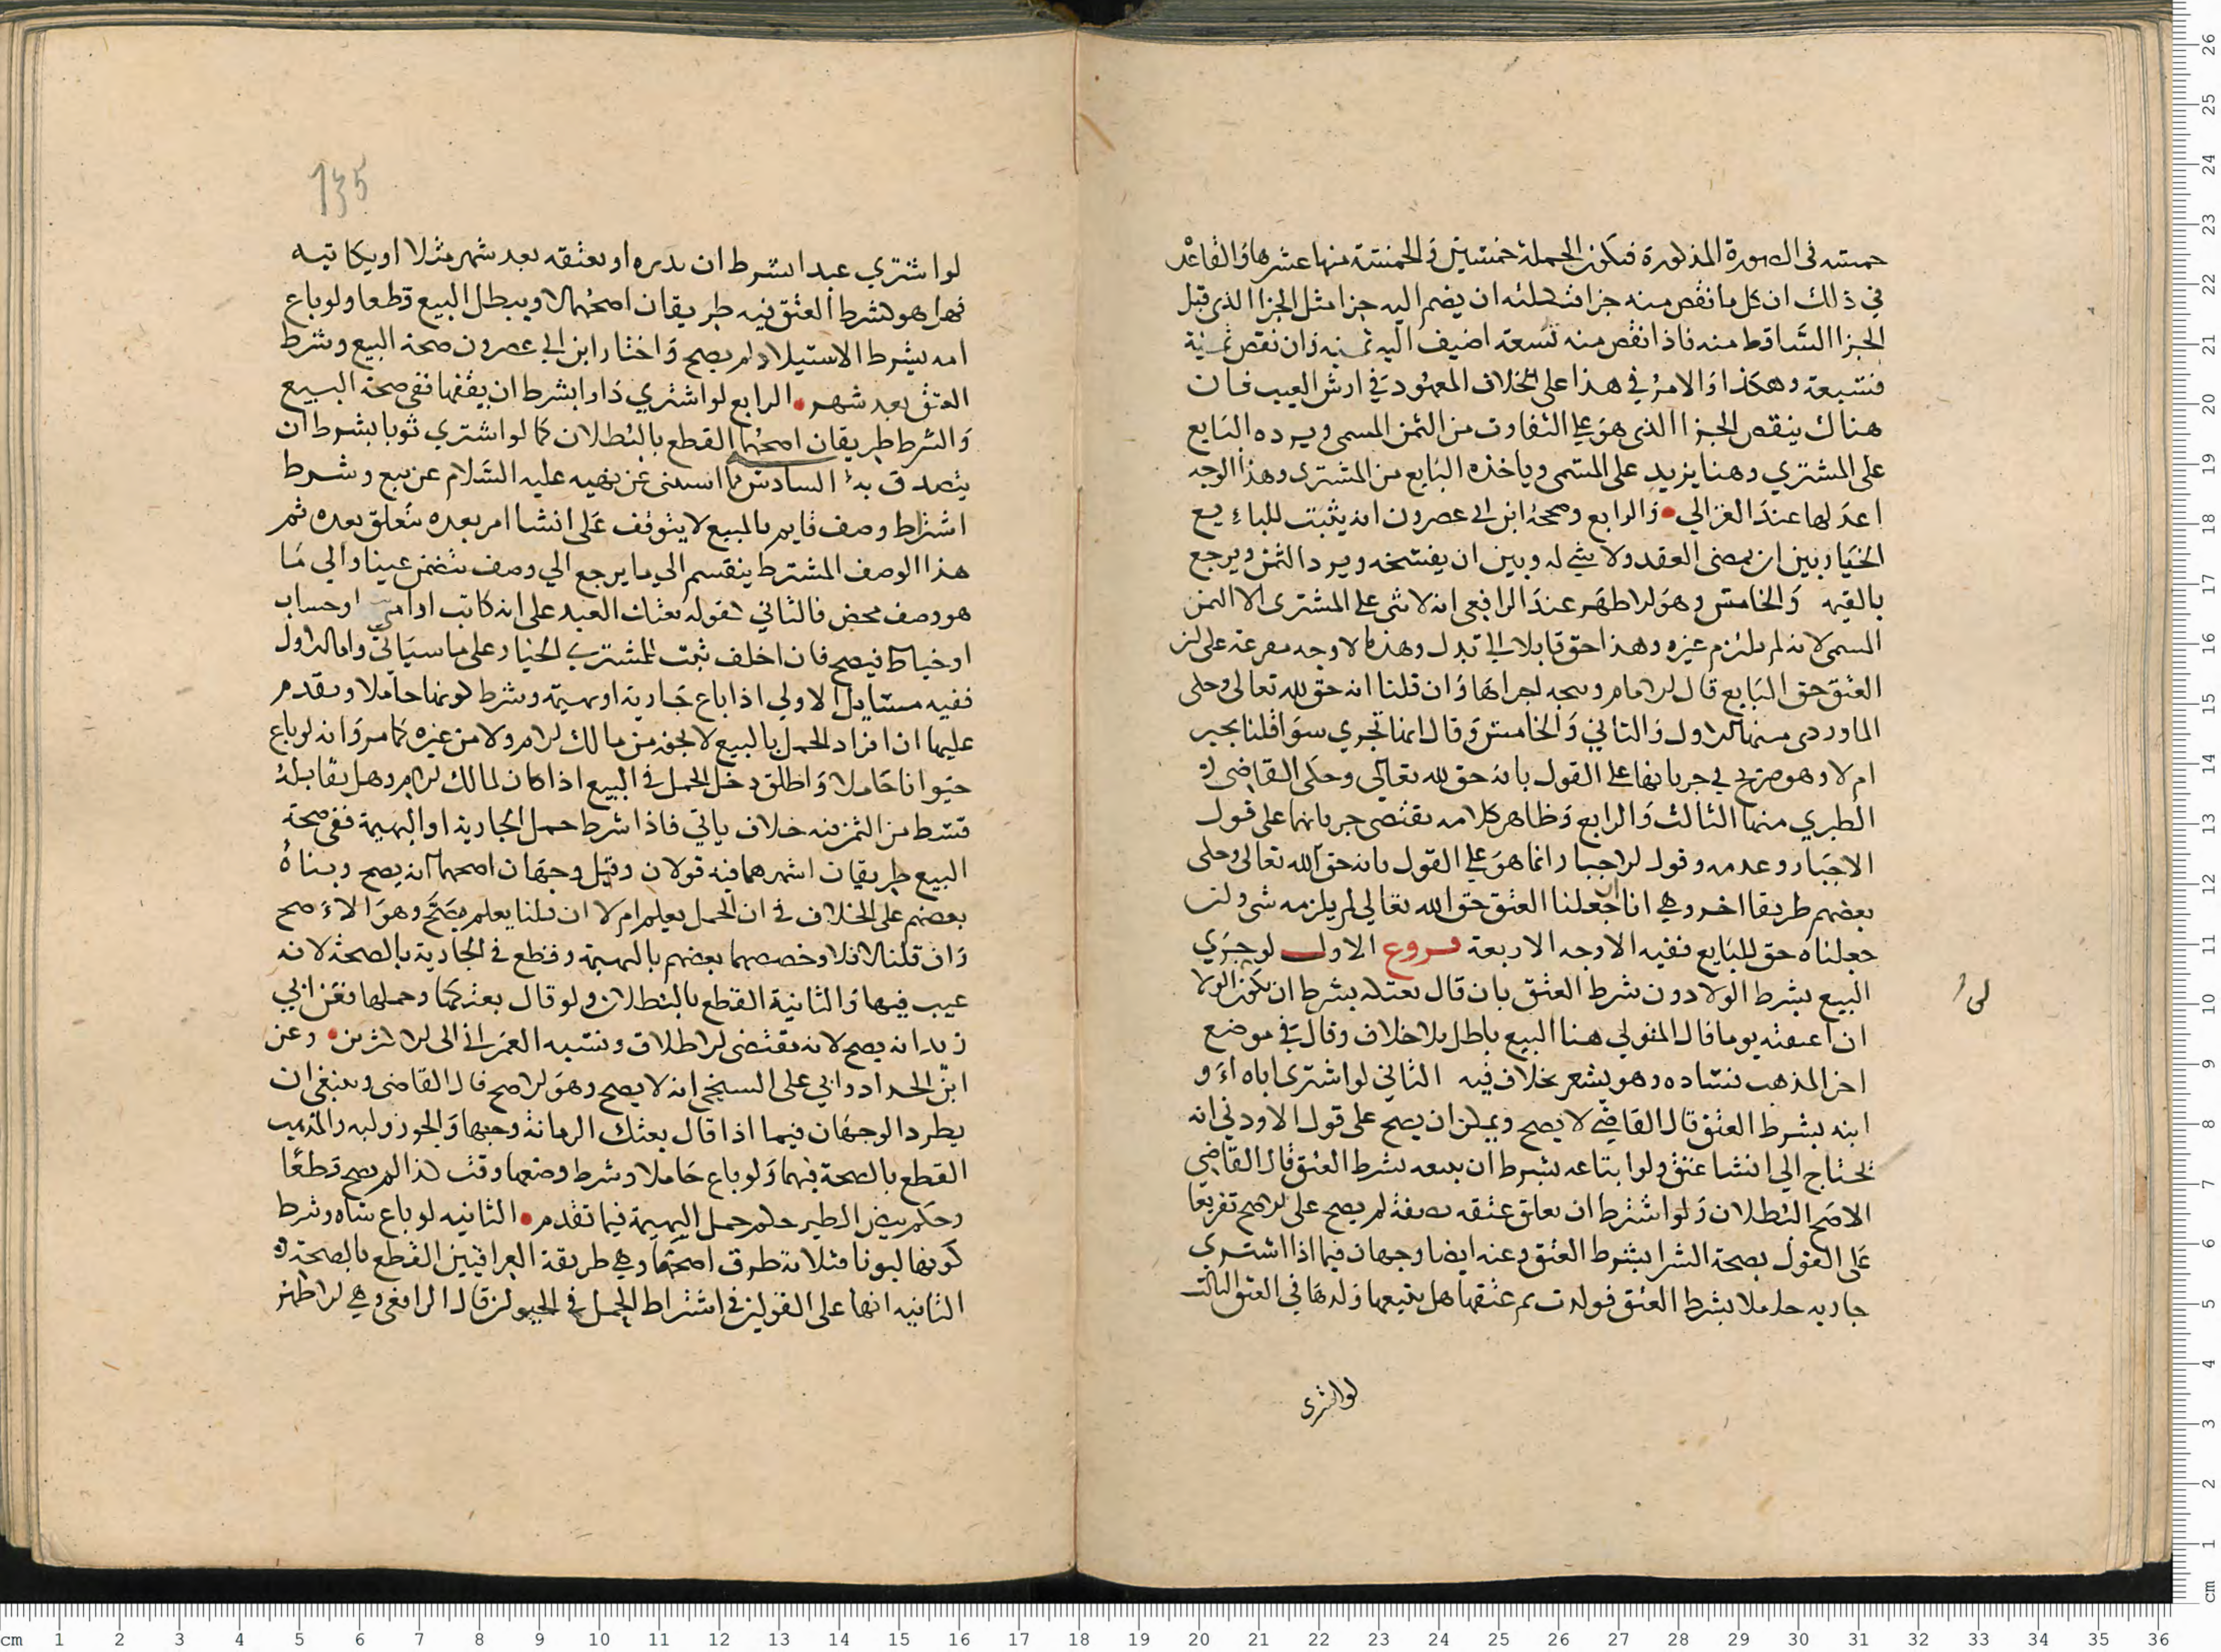 خمسه في الصورة المذكورة فتكون الجملة خمسين والخمسة منها عشرها والقاعدة
في ذلك ان كل ما نقص منه جزا فسبيله ان يضم اليه جزا مثل الجزا الذي قبل
الجزا الساقط منه فاذا نقص منه تسعة اضيف اليه ثمنه وان نقص ثمنه
فسبعة وهكذا والامر في هذا على الخلاف المعهود في ارش العيب فان
هناك ينقص الجزا الذي هو على التفاوت من الثمن المسمى ويرده البايع
على المشتري وهنا يزيد على المسمى وياخذه البايع من المشتري وهذا الوجه
اعدلها عند الغزالي والرابع وصححه ابن ابي عصرون انه يثبت للبايع
الخيار بين ان يمضي العقد ولا شي له وبين ان يفسخه ويرد الثمن ويرجع
بالقيمة والخامس وهو الاظهر عند الرافعي انه لا شي على المشتري الا الثمن
المسمى لانه لم يلتزم غيره وهذا حق قابلا بلا بدل وهذه الاوجه مفرعة على ان
العتق حق البايع قال الامام ويتجه اجراها وان قلنا انه حق لله تعالى وحكى
الماوردي منها الاول والثاني والخامس وقال انها تجري سوا قلنا يجبر
ام لا وهو صريح في جريانها على القول بانه حق لله تعالى وحكى القاضي
الطبري منها الثالث والرابع وظاهر كلامه يقتضي جريانها على قول
الاجبار وعدمه وقول الاجبار انما هو على القول بانه حق الله تعالى وحكى
بعضهم طريقا اخر وهي انا ان جعلنا العتق حق الله تعالى لم يلزمه شي وان
جعلناه حق للبايع ففيه الاوجه الاربعة فروع الاول لو جري
البيع بشرط الولا دون شرط العتق بان قال بعتكه بشرط ان يكون الولا لي
ان اعتقته يوما قال المتولي هنا البيع باطل بلا خلاف وقال في موضع
اخر المذهب فساده وهو يشعر بخلاف فيه الثاني لو اشترى اباه او
ابنه بشرط العتق قال القاضي لا يصح ويمكن ان يصح على قول الاودني انه
يحتاج الي انشا عتق ولو ابتاعه بشرط ان يبيعه بشرط العتق قال القاضي
الاصح البطلان ولو اشترط ان يعلق عتقه بصفة لم يصح على الاصح تفريعا
على القول بصحة الشرا بشرط العتق وعنه ايضا وجهان فيما اذا اشتري
جاريه حاملا بشرط العتق فولدت ثم عتقها هل يتبعها ولدها في العتق الثالث
لو اشتري
135
لو اشتري عبدا بشرط ان يدبره او يعتقه بعد شهر مثلا او يكاتبه
فهل هو كشرط العتق فيه طريقان اصحهما لا ويبطل البيع قطعا ولو باع
امه بشرط الاستيلاد لم يصح واختار ابن ابي عصرون صحة البيع وشرط
العتق بعد شهر الرابع لو اشتري دارا بشرط ان يقفها ففي صحة البيع
والشرط طريقان اصحهما القطع بالبطلان كما لو اشتري ثوبا بشرط ان
يتصدق به السادس مما استثنى عن نهيه عليه السلام عن بيع وشرط
اشتراط وصف قايم بالمبيع لا يتوقف على انشا امر بعده يتعلق بعده ثم
هذا الوصف المشترط ينقسم الي ما يرجع الي وصف يتضمن عينا والي ما
هو وصف محض فالثاني كقوله بعتك العبد على انه كاتب او امي او حساب
او خياط فيصح فان اخلف ثبت للمشتري الخيار على ما سياتي واما الاول
ففيه مسايل الاولي اذا باع جارية او بهيمة وشرط كونها حاملا ويقدم
عليها ان افراد الحمل بالبيع لا يجوز من مالك الام ولا من غيره كما مر وانه لو باع
حيوانا حاملا واطلق دخل الحمل في البيع اذا كان لمالك الام وهل يقابله
قسط من الثمن فيه خلاف ياتي فاذا شرط حمل الجارية او البهيمة ففي صحة
البيع طريقان اشهرهما فيه قولان وقيل وجهان اصحهما انه يصح وبناه
بعضهم على الخلاف في ان الحمل يعلم ام لا ان قلنا يعلم يصح وهو الاصح
وان قلنا لا فلا وخصصهما بعضهم بالبهيمة وقطع في الجارية بالصحة لانه
عيب فيها والثانية القطع بالبطلان ولو قال بعتكها وحملها فعن ابي
زيد انه يصح لانه مقتضى الاطلاق ونسبه العمراني الى الاكثرين وعن
ابن الحداد وابي على السنجي انه لا يصح وهو الاصح قال القاضي وينبغي ان
يطرد الوجهان فيما اذا قال بعتك الرمانة وحبها والجوز ولبه والمذهب
القطع بالصحة فيهما ولو باع حاملا وشرط وضعها وقت كذا لم يصح قطعا
وحكم بيض الطير حكم حمل البهيمة فيما تقدم الثانيه لو باع شاه وشرط
كونها لبونا فثلاثة طرق اصحها وهي طريقة العراقيين القطع بالصحة و
الثانيه انها على القولين في اشتراط الحمل في الحيوان قال الرافعي وهي الاظهر